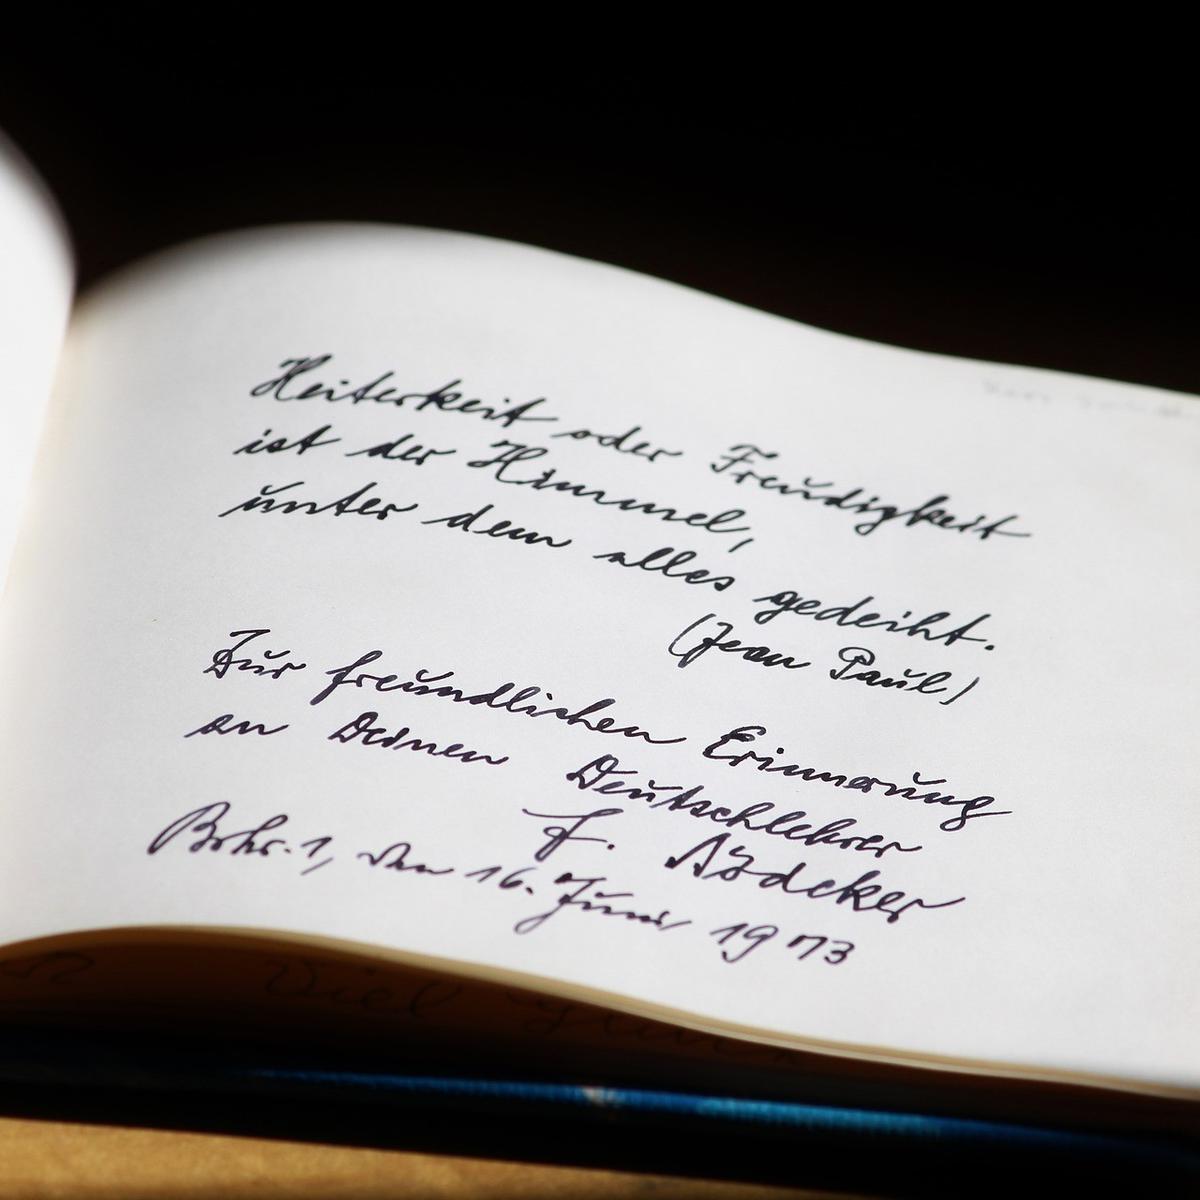 Heiterkeit oder Freudigkeit
ist der Himmel,
unter dem alles gedeiht.
(Jean Paul)
Zur freundlichen Erinnerung
an Deinen Deutschlehrer
F.
Brhr. 1, den 16. Juni 1973
Viel